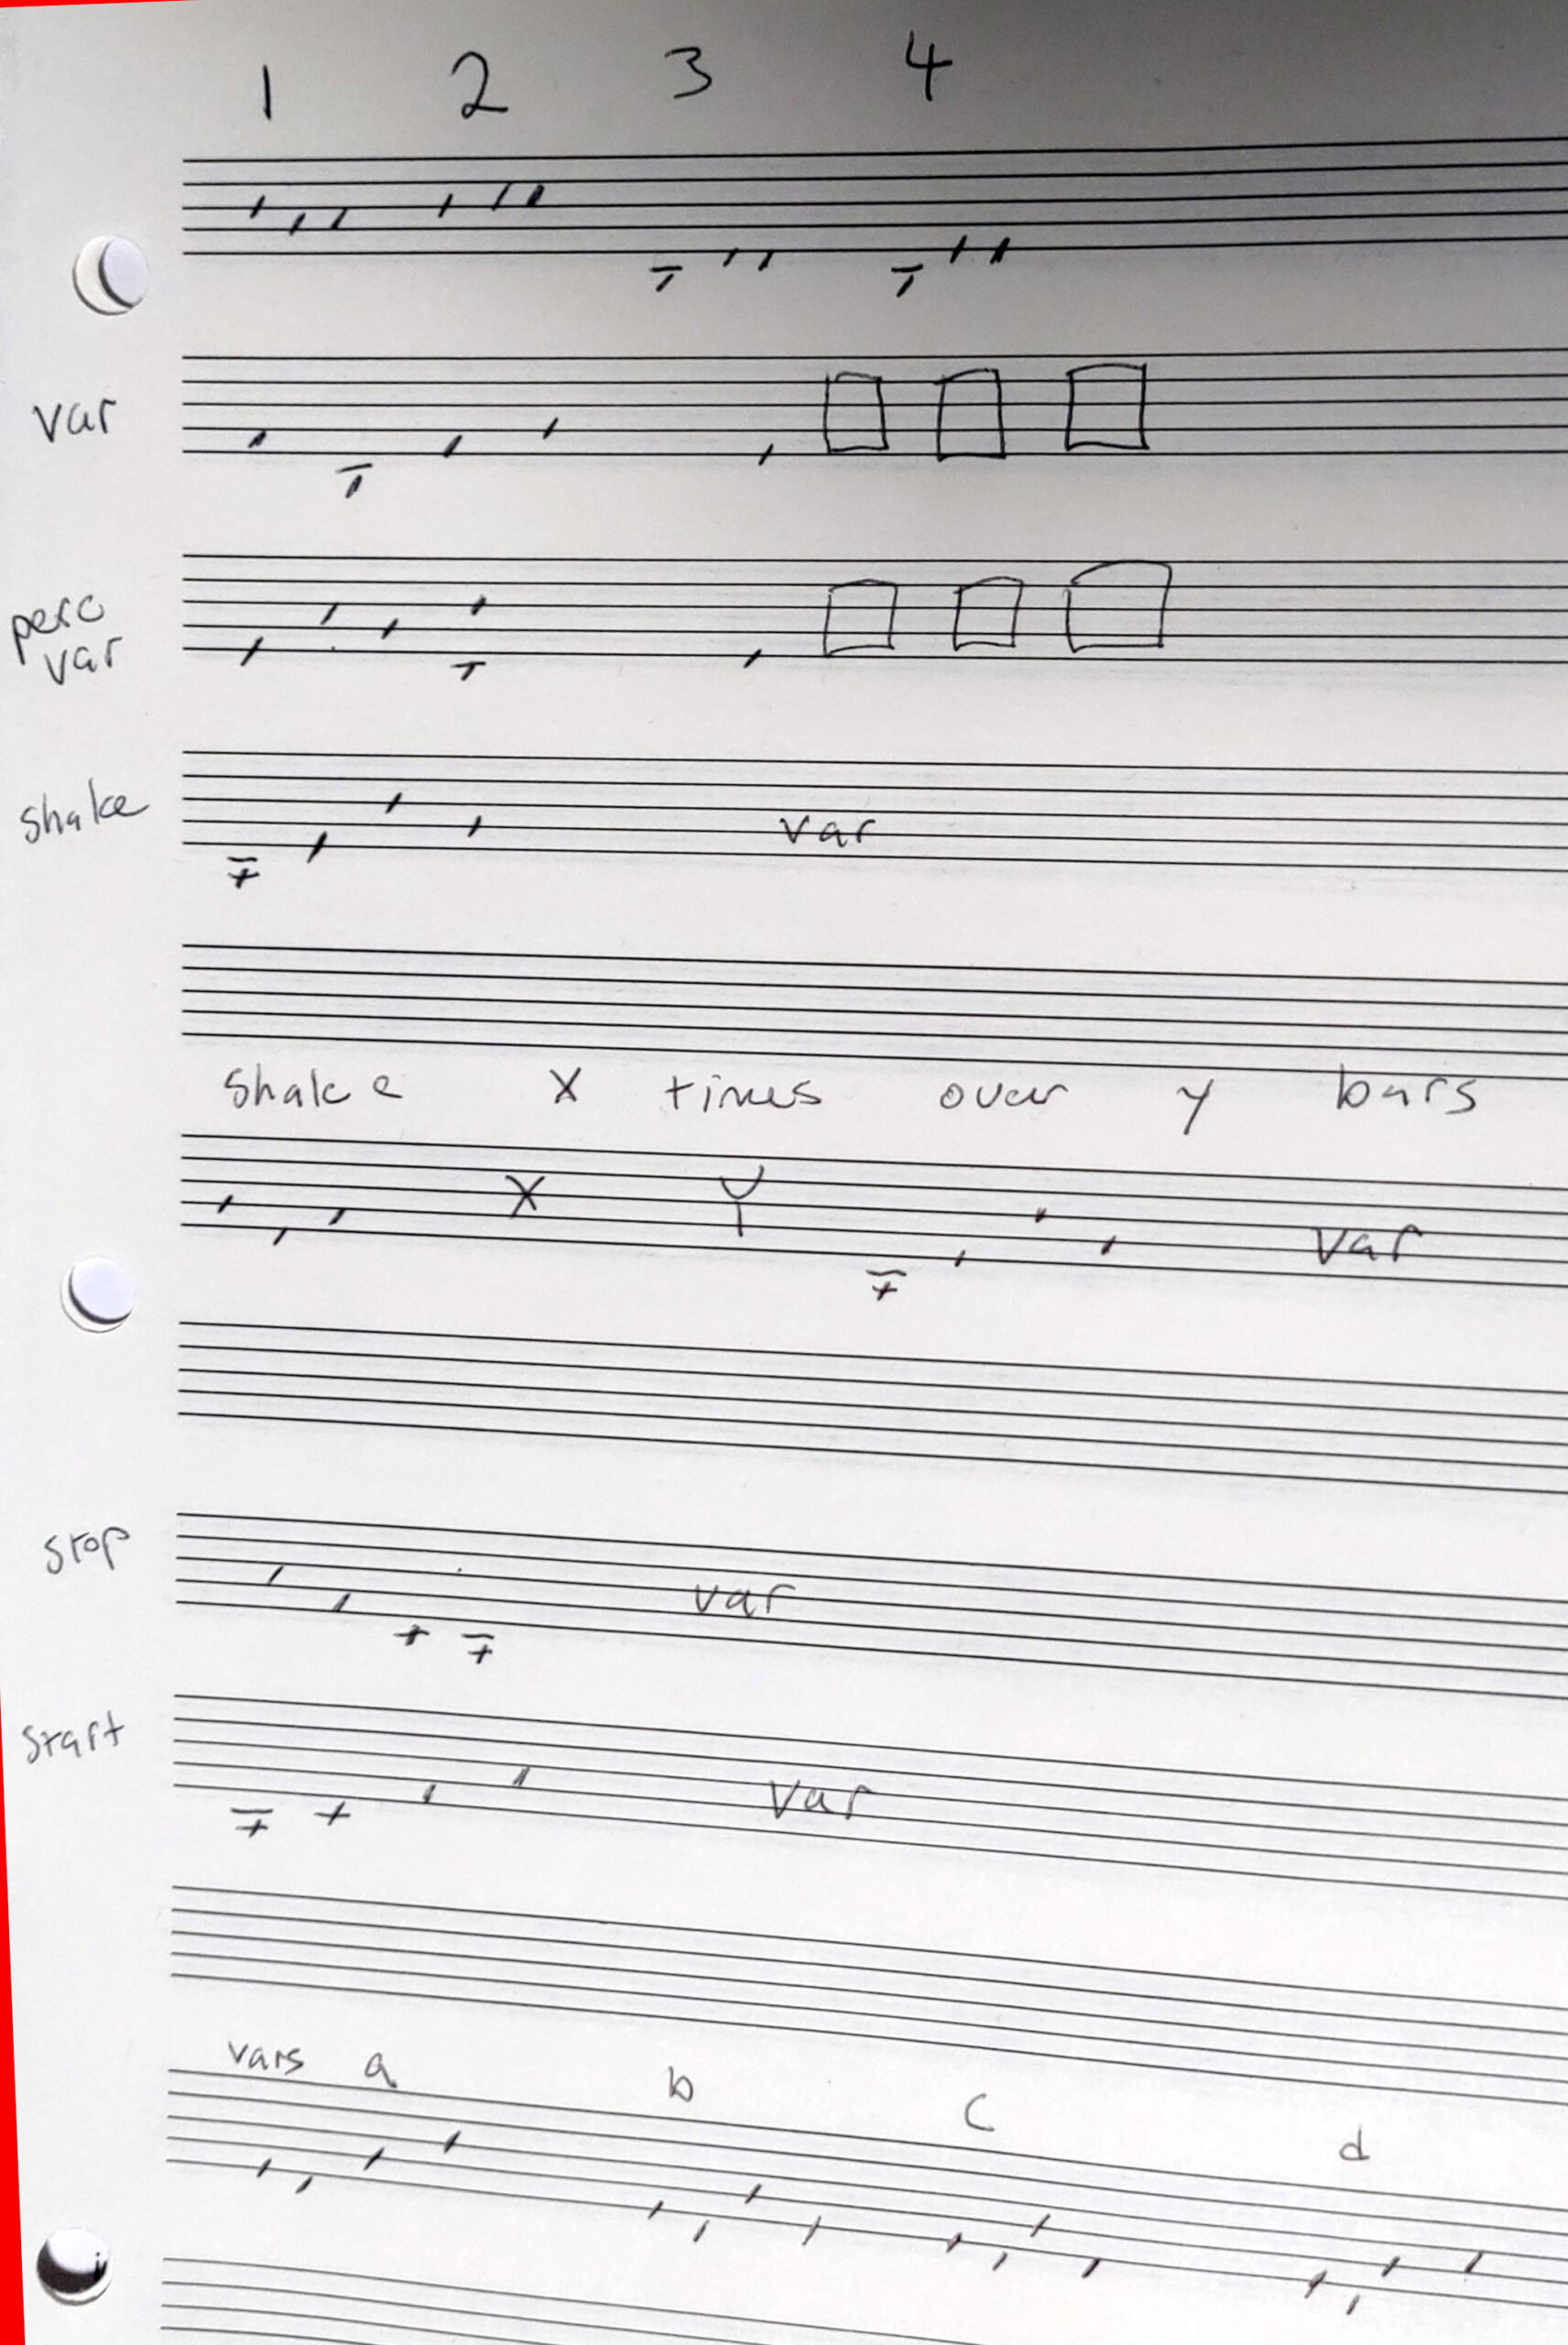 1 2 3 4
var
perc
var
shake
var
shake X times over y bars
X Y
var
stop
var
start
var
vars a b c d